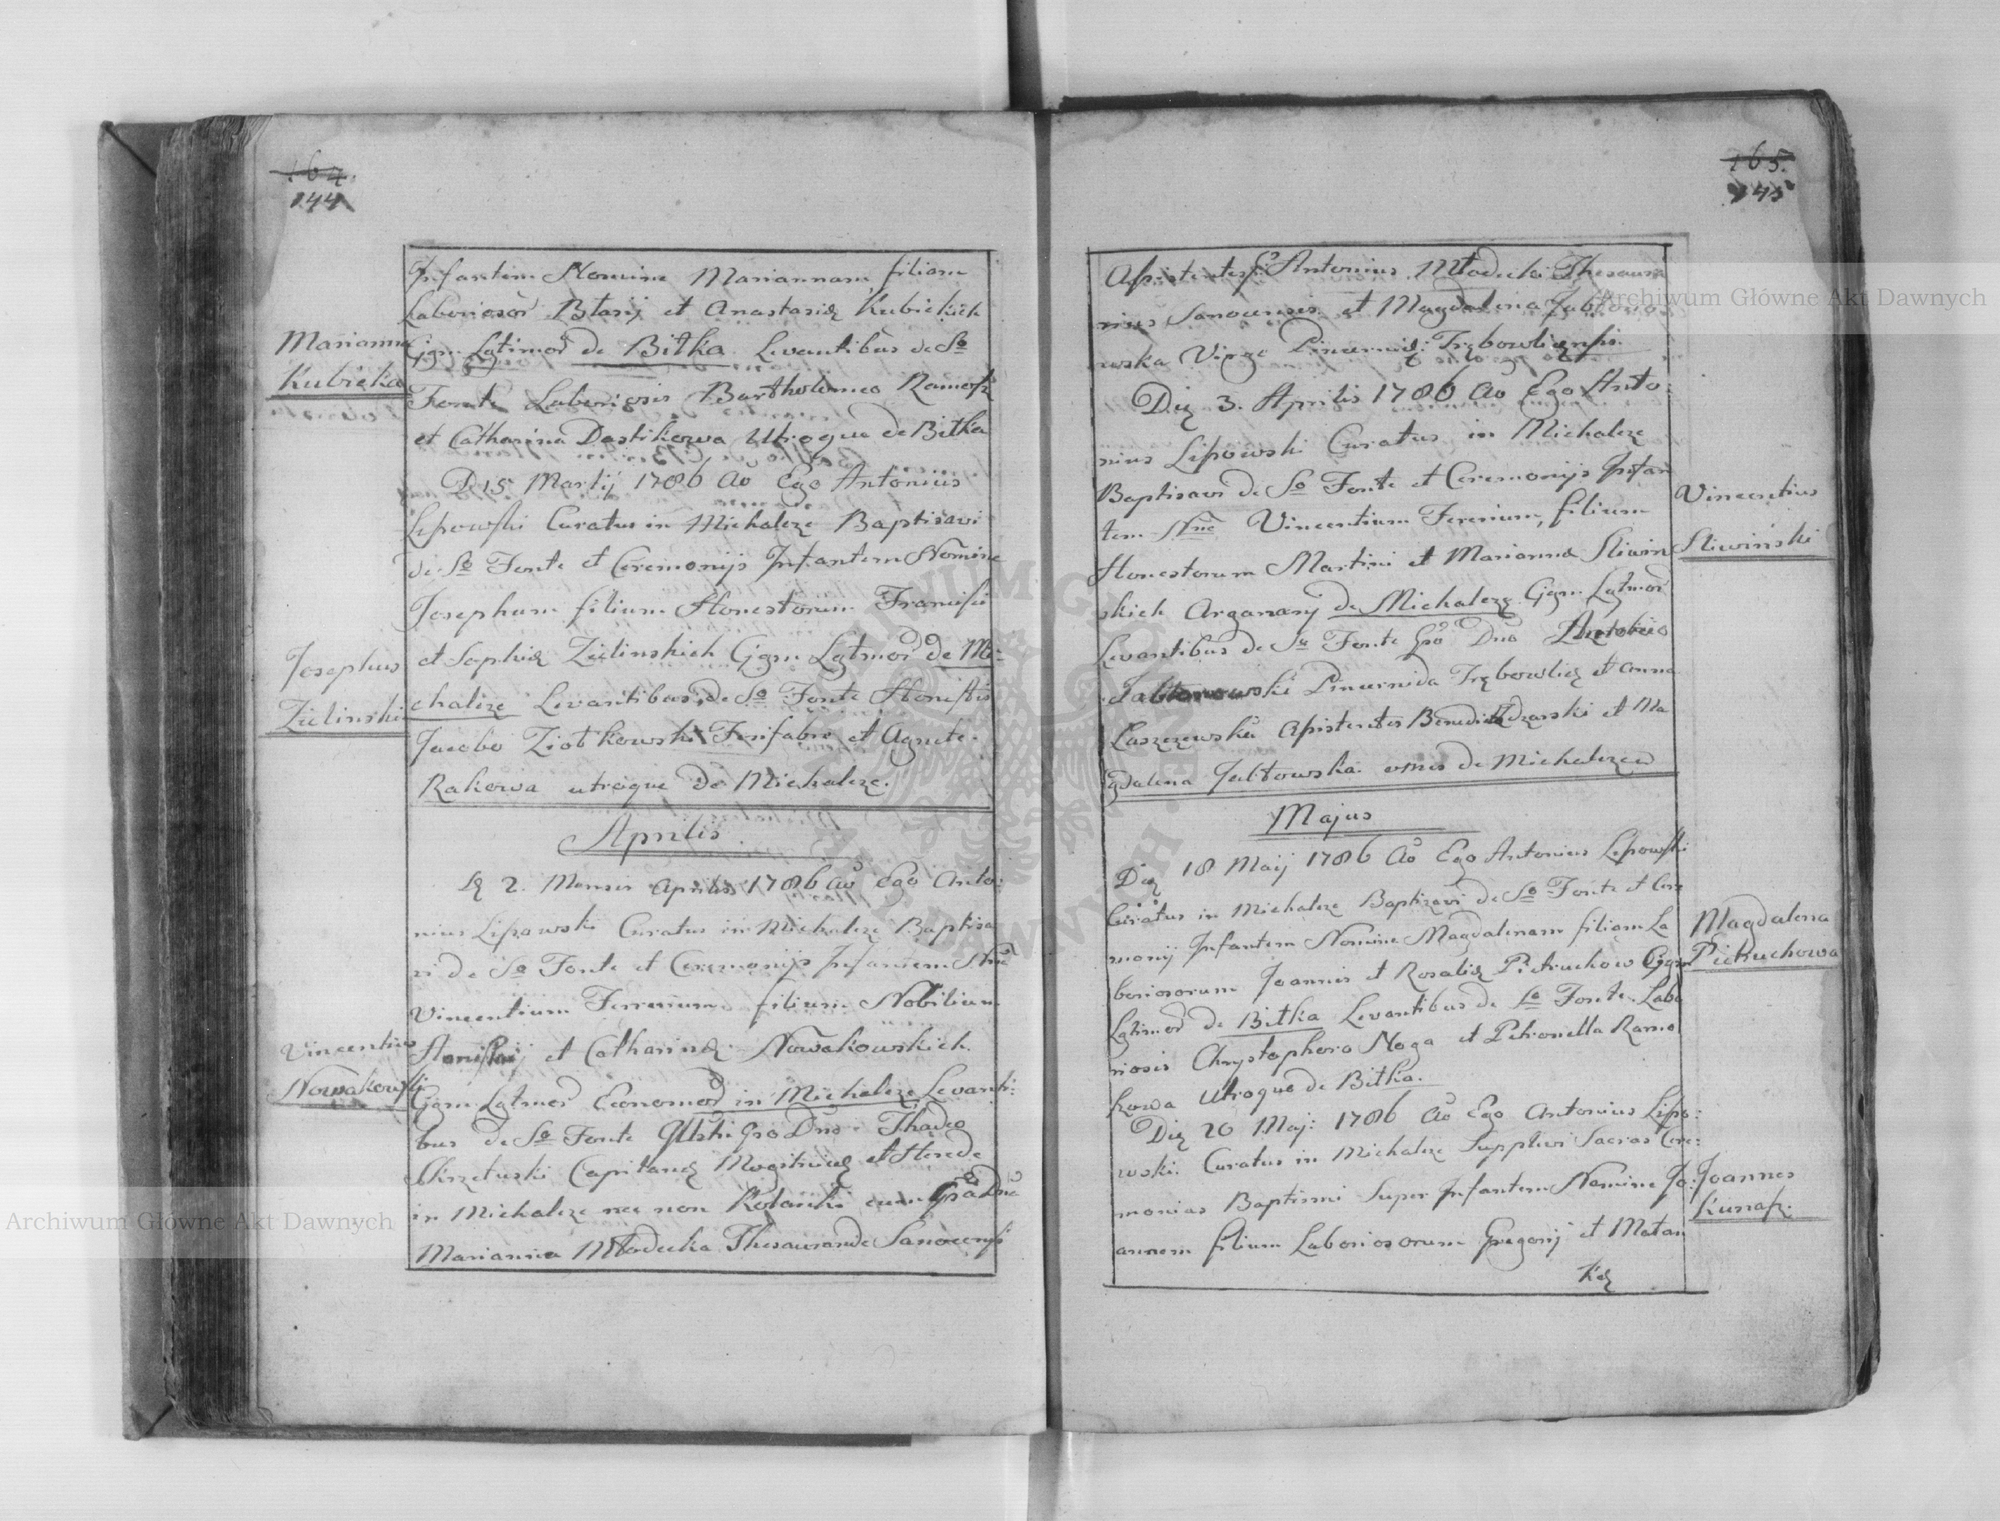 164.
144
Infantem Nomine Mariannam filiam
Laboriosor Blasij et Anastasiæ Kubickich
Cjgm Lgtimor̃ de Bitka Levantibus de So
Fonte Laboriosis Bartholomeo
et Catharina Dastikowa Utroque de Bitka
D. 15 Martij 1786 Ao Ego Antonius
Lipowski Curatus in Michalcze Baptisavi
de So Fonte et Ceremonijs Infantem Nomine
Josephum filium Honestorum Francisci
et Sophiæ Zielinskich Cjgm Lgtmor̃ de Mi:
chalcze Levantibus de So Fonte Honestis
Jacobo Ziołkowski Frifabro et Agnete
Rakowa utroque de Michalcze.
Marianna
Kubicka
Josephus
Zielinski
Aprilis
2. Mensis Aprilis 1786 Ao Ego Anto:
nius Lipowski Curatus in Michalcze Baptisa
vi de So Fonte et Ceremonijs Infantem Nne
Vincentium Ferrerium filium Nobilium
et Catharinæ Nowakowskich
Cjgm Lgtmor̃ Economor̃ in Michalcze Levanti:
bus de So Fonte Dno Thadeo
Capitaneæ et Herede
in Michalcze nec non cum
Marianna Mładecka Sanocensi
Vincentius
Nowakowski
165.
145
Antonius Mładecki Thesaura
rius Sanocensis et Magdalena Jabłono
wska Virgo
Diæ 3. Aprilis 1786 Ao Ego Anto:
nius Lipowski Curatus in Michalcze
Baptisavi de So Fonte et Ceremonijs Infan
tem Nne Vincentium Fererium, filium
Honestorum Martini et Mariannæ Sliwin
skich Arganarij de Michalcze Cjgm Lgtmor̃
Levantibus de So Fonte Gso Dno Antonio
Jabłonowski Pincernida Tręb­owliæ et Anna
Laszczewska Assistentes et Ma
gdalena Jabłowska omes de Michalcze
Vincentius
Sliwiński
Majus
Diæ 18 Maij 1786 Ao Ego Antonius Lipowski
Curatus in Michalcze Baptizavi de So Fonte et Cere
monij Infantem Nomine Magdalenam filiam La
boriosorum Joannis et Rosaliæ Pietruchow Cjgm
Lgtimor̃ de Bitka Levantibus de So Fonte Labo
riosis Chrystophoro Noga et Petronella Ramo
kowa Utroque de Bitka.
Diæ 20 Maj: 1786 Ao Ego Antonius Lipo:
wski Curatus in Michalcze Supplevi Sacras Cere:
monias Baptismi Super Infantem Nomine Jo:
annem filium Laboriosorum Gregorij et Matan
Magdalena
Pietruchowa
Joannes
Kunak.
Archiwum Główne Akt Dawnych
Archiwum Główne Akt Dawnych